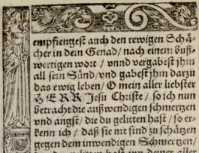 empfiengest auch den rewigen Schä-
cher in dein Genad/ nach einem buß-
wertigen wort / vnnd vergabest jhm
all sein Sünd/ vnd gabest jhm darzu
das ewig leben/ O mein aller liebster
HERR Jesu Christe / so ich nun
betrachte die außwendigen schmertzen
vnd angst/ die du gelitten hast / so er-
kenn ich / daß sie nit sind zu schätzen
gegen dem inwendigen Schmertzen/